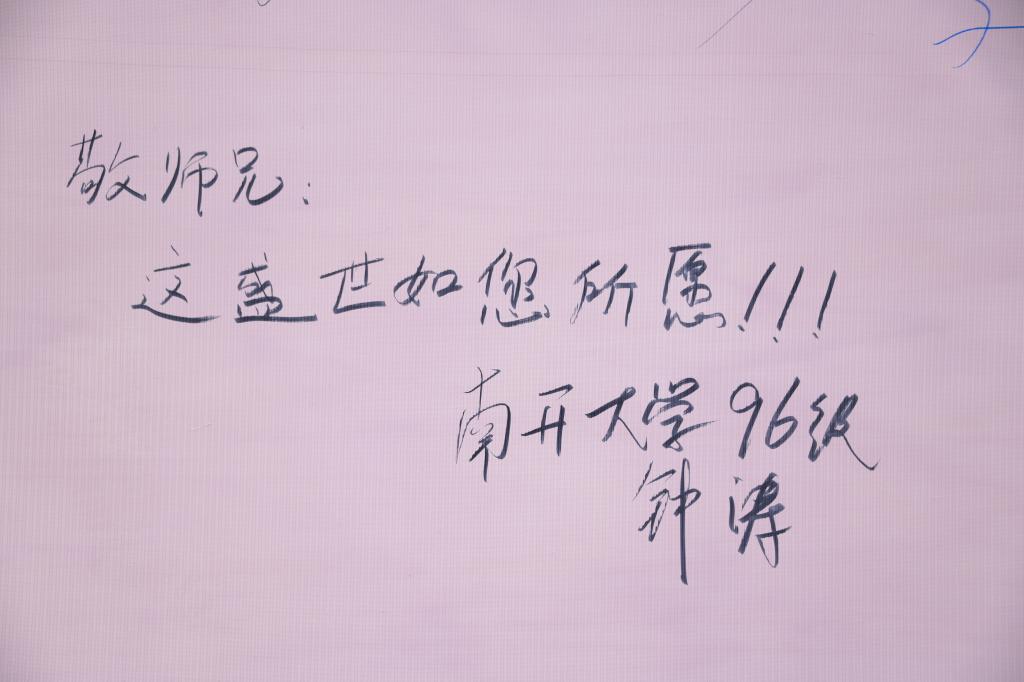 敬师兄：
这盛世如您所愿!!!
南开大学96级
钟涛